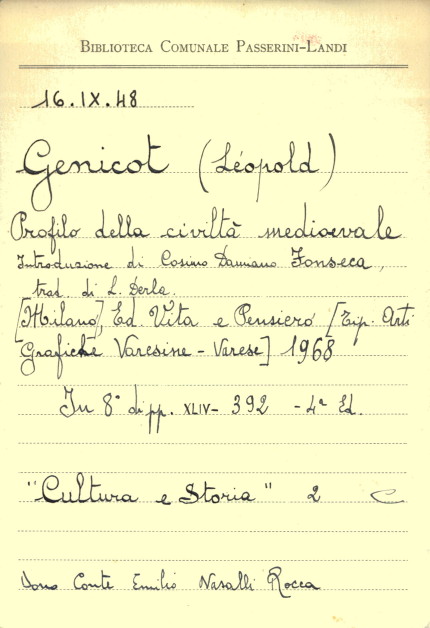 BIBLIOTECA COMUNALE PASSERINI-LANDI
16.IX.48
Genicot (Léopold)
Profilo della civiltà medioevale
Introduzione di Cosimo Damiano Fonseca,
trad. di L. Derla.
[Milano], Ed. Vita e Pensiero [Tip. Arti
Grafiche Varesine - Varese] 1968
In 8° di pp. XLIV- 392 - 4ª Ed.
"Cultura e Storia" 2 C
Dono Conte Emilio Nasalli Rocca